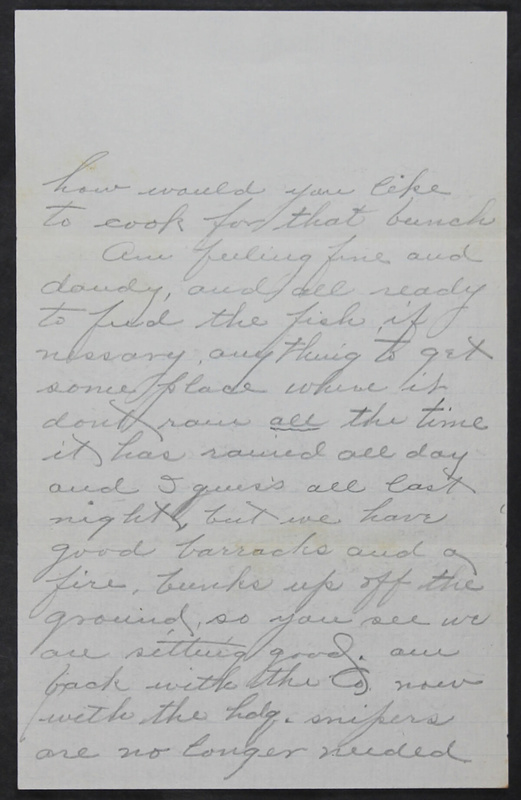 how would you like
to cook for that bunch
Am feeling fine and
dandy, and all ready
to feed the fish, if
nessary, anything to get
some place where it
dont rain all the time
it has rained all day
and I guess all last
night, but we have
good barracks and a
fire, bunks up off the
ground, so you see we
are setting good. am
back with the Co now
with the hdq. snipers
are no longer needed